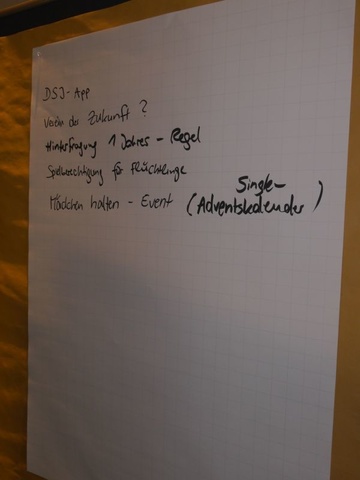 DSJ-App
Verein der Zukunft?
Hinterfragung 1 Jahres-Regel
Spielberechtigung für Flüchtlinge
Mädchen halten - Event (Single-
Adventskalender)